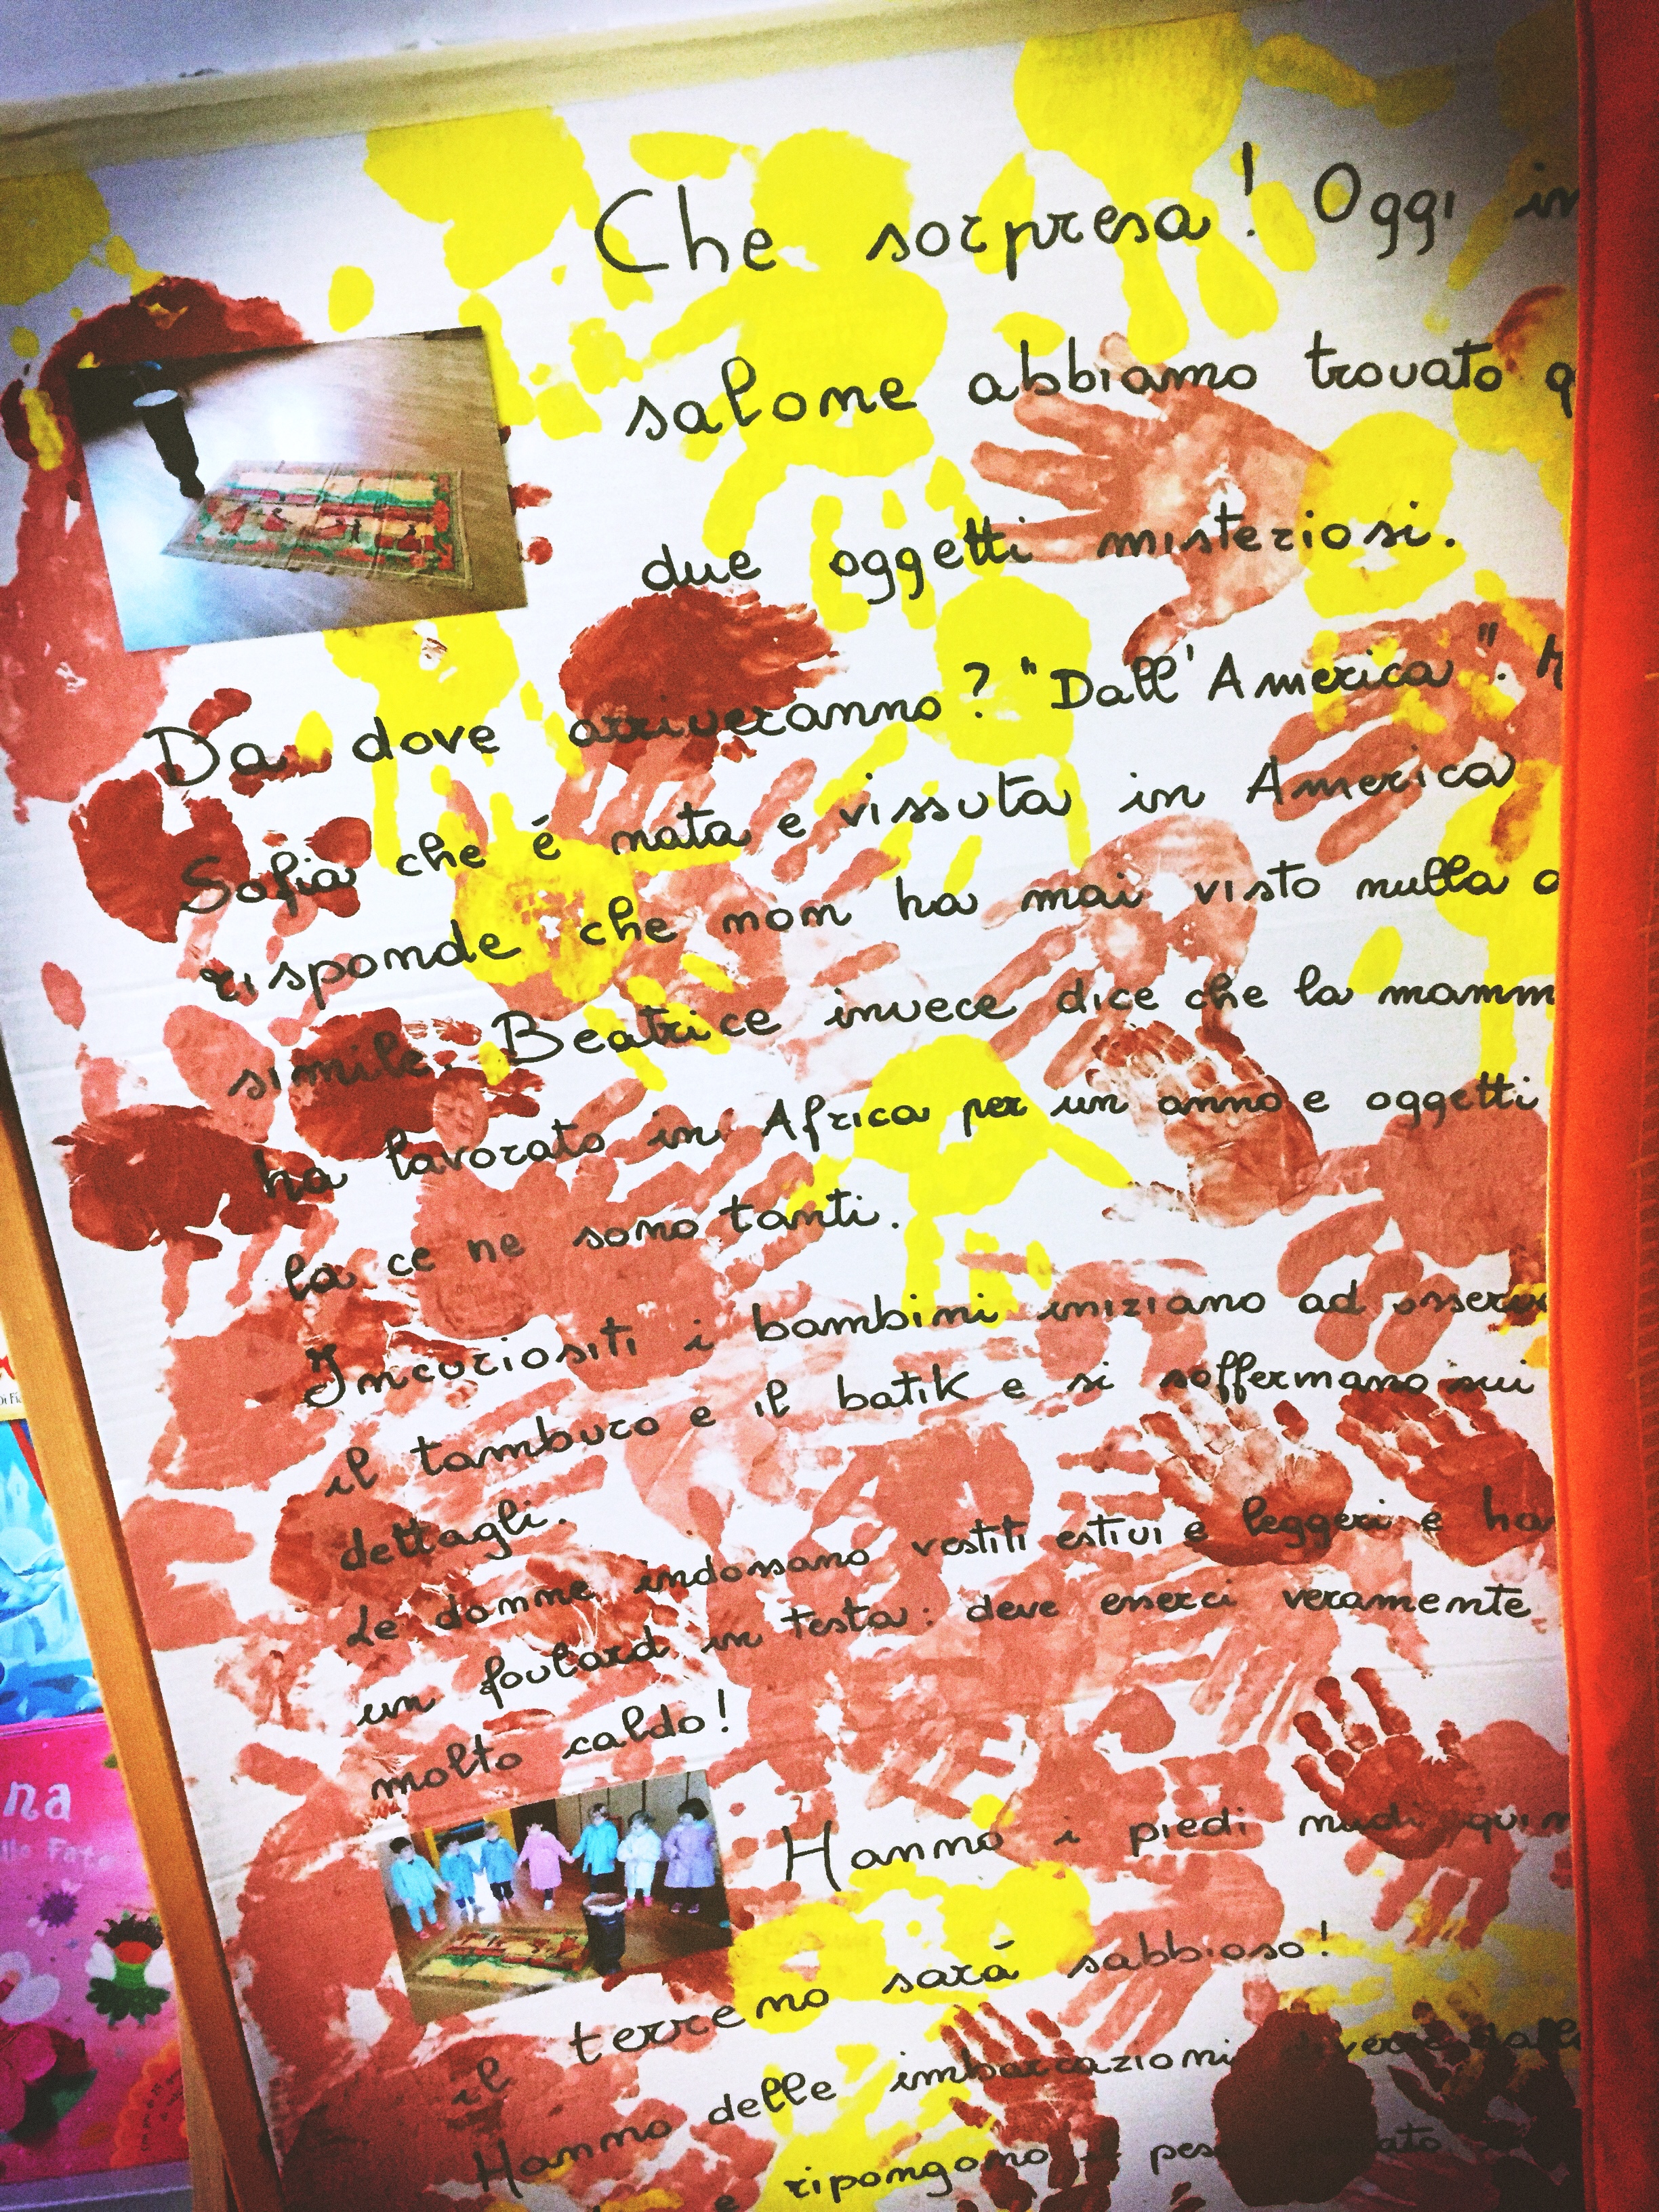 Che sorpresa! Oggi in
salone abbiamo trovato
due oggetti misteriosi.
Da dove arriveranno? "Dall'America".
Sofia che é nata e vissuta in America
risponde che non ha mai visto nulla
simile. Beatrice invece dice che la mamm
ha lavorato in Africa per un anno e oggetti
la ce ne sono tanti.
Incuriositi i bambini iniziano ad osserv
il tamburo e il batik e si soffermano sui
dettagli.
Le donne indossano vestiti estivi e leggeri e ha
un foulard in testa: deve esserci veramente
molto caldo!
Hanno i piedi nudi quin
il terreno sarà sabbioso!
Hanno delle imbarcazioni
e ripongono
na
lle Fate